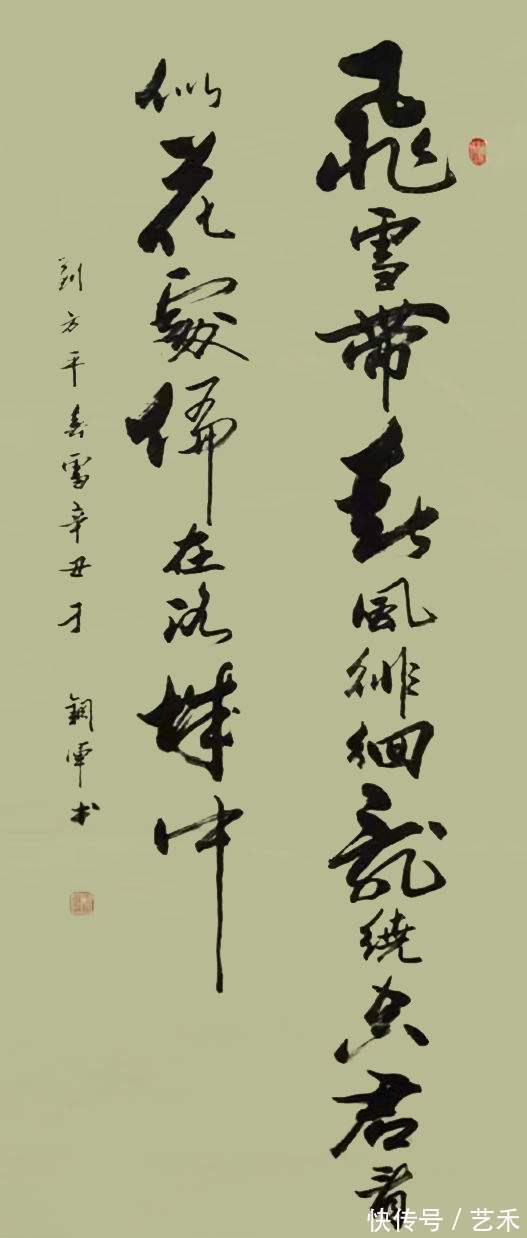 飛雪帶春風徘徊亂繞空君看
似花處偏在洛城中
劉方平春雪辛丑 鋼軍书
快传号 / 艺禾